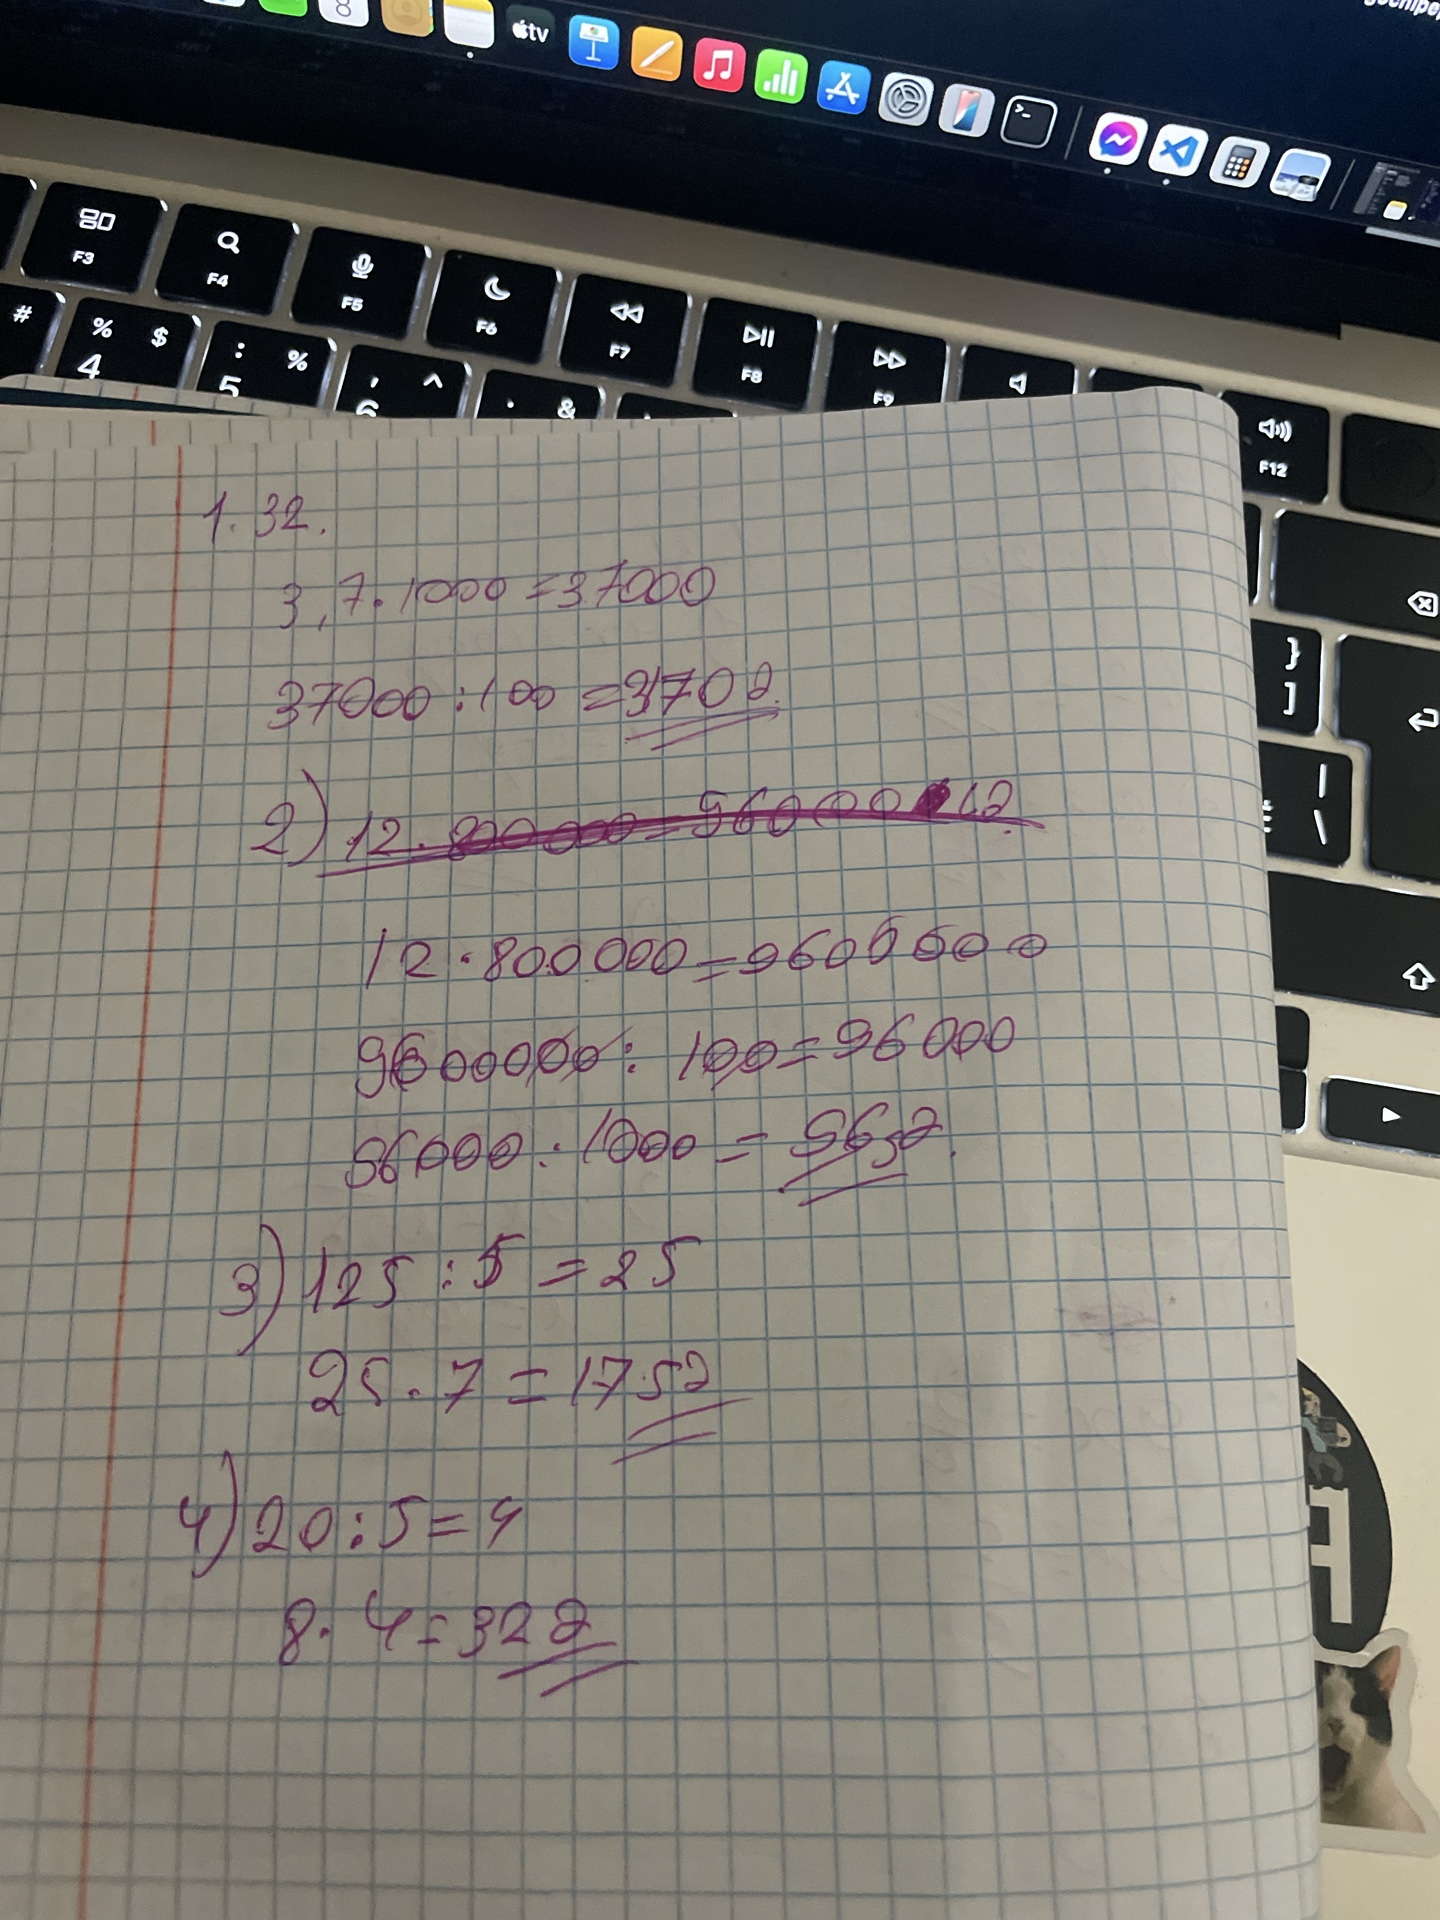 tv
F3
F4
F5
F6
F7
F8
F9
F12
#
% $
4
: %
5
, ^
6
. &
}
]
|
\
1.32.
3,7·1000=37000
37000:100=370г
2) 12·800000=9600000:12
12·800000=9600000
9600000:100=96000
96000:1000=96г.
3) 125:5=25
25·7=175г
4) 20:5=4
8·4=32г